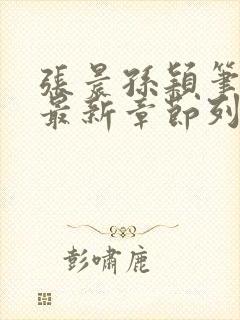 張晨孫穎筆
最新章節列
彭嘯鹿